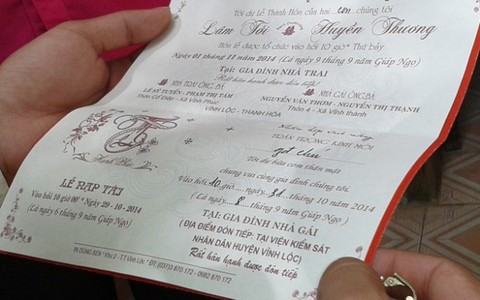 Tới dự Lễ Thành Hôn của hai con chúng tôi
Lâm Tới Huyền Thương
Hôn lễ được tổ chức vào hồi 10 giờ Thứ bảy
Ngày 01 tháng 11 năm 2014 (Là ngày 9 tháng 9 năm Giáp Ngọ)
Tại: GIA ĐÌNH NHÀ TRAI
Rất hân hạnh được đón tiếp!
NHÀ TRAI ÔNG BÀ
LÊ SỸ TUYẾN - PHẠM THỊ TÁM
Xã Vĩnh Phúc
NHÀ GÁI ÔNG BÀ
NGUYỄN VĂN THƠM - NGUYỄN THỊ THANH
Thôn 4 - Xã Vĩnh thành
VĨNH LỘC - THANH HÓA
TRÂN TRỌNG KÍNH MỜI
Tới dự bữa cơm thân mật
chung vui cùng gia đình chúng tôi
Vào hồi 10 giờ ngày 31 tháng 10 năm 2014
(Là ngày 8 tháng 9 năm Giáp Ngọ)
TẠI: GIA ĐÌNH NHÀ GÁI
(ĐỊA ĐIỂM ĐÓN TIẾP: TẠI VIỆN KIỂM SÁT
NHÂN DÂN HUYỆN VĨNH LỘC)
Rất hân hạnh được đón tiếp
LỄ RẠP TẠI
Vào hồi 10 giờ 00' Ngày 29 - 10 - 2014
(Là ngày 6 tháng 9 năm Giáp Ngọ)